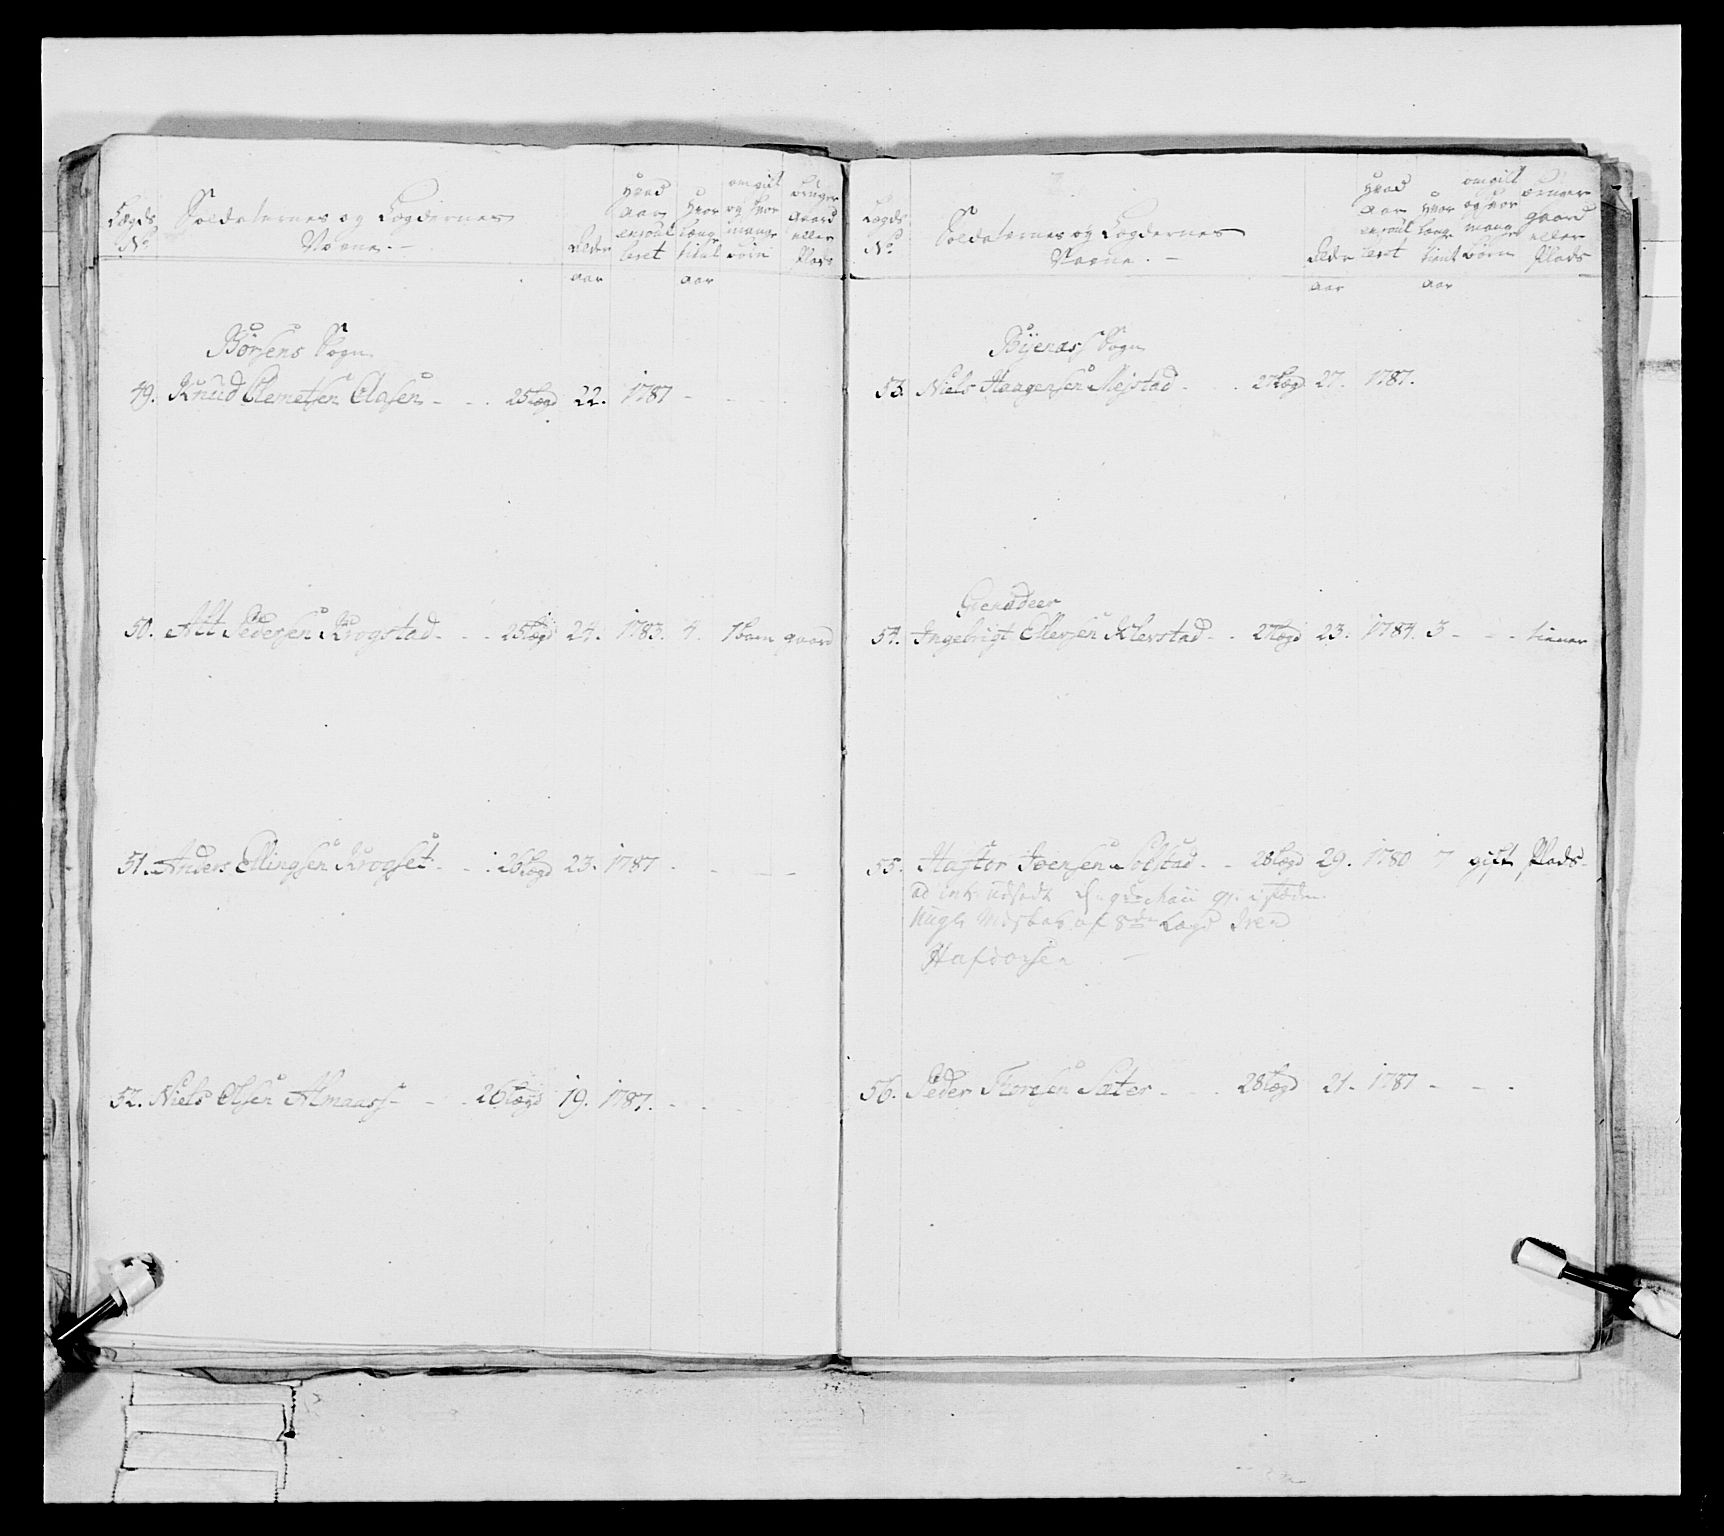 Lægds No
Soldaternes og Lægdernes
Navne. -
Alder
aar
Hvad
aar
enroul
leret
Hvor
længe
tient
aar
om gift
og hvor
mange
børn
bruger
gaard
eller
Plads
Børsens Sogn
49. Knud Clemetsen Clasen - - . 25 Lægd 22. 1787 - - - -
50. Alt Pedersen Krogstad - - . 25 Lægd 24. 1783. 4. 1 barn gaard
51. Anders Ellingsen Krogset - - . 26 Lægd 23. 1787 - - - -
52. Niels Olsen Almaass - - . 26 Lægd 19. 1787. - - -
Lægds
No
Soldaternes og Lægdernes
Navne. -
Alder
aar
Hvad
aar
enroul
leret
Hvor
længe
tient
aar
om gift
og hvor
mange
børn
bruger
gaard
eller
Plads
Bijenæss Sogn
53. Niels Haagensen Mejstad - . . 27 Lægd 27. 1787.
54. Ingebrigt Ellersen Klevstad - . 27 Lægd 23. 1784. 3 - - - tiener
55. Joensen Solstad - - 28 Lægd 29. 1780 7 gift Plads -
af 8de Lægd Iver
Hafdorsen -
56. Peder Thoresen Sæter - - . 28 Lægd 21. 1787 - - -